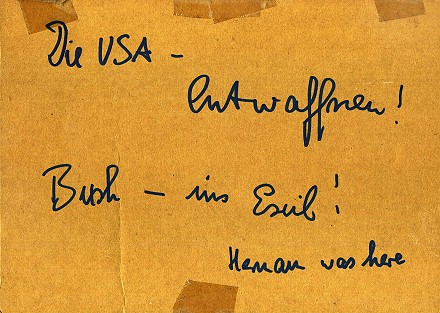 Die USA -
entwaffnen!
Bush - ins Exil!
Herman was here